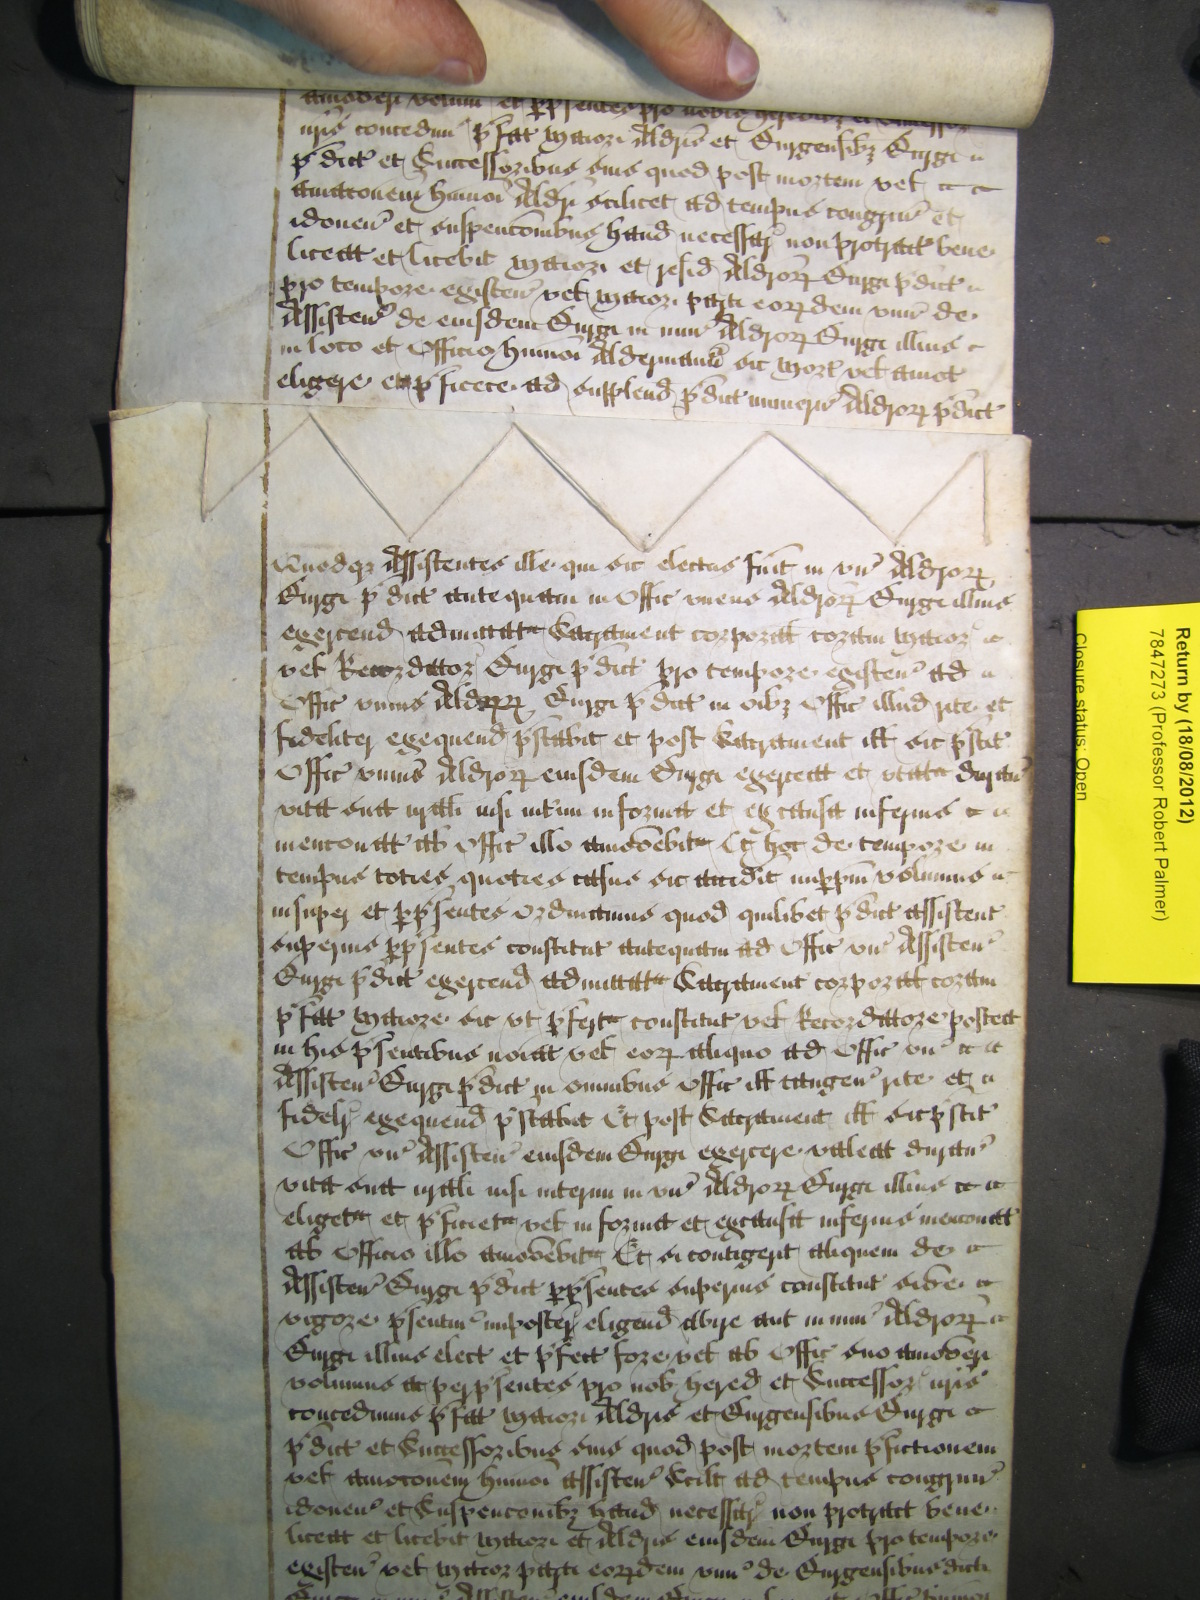 amoveri volum et p psentes pro nobis
nris concedim p fat Maiori Aldris et Burgensibz Burgi
p dict et Successoribus suis quod post mortem vel
amaconem humoi Aldri scilicet ad tempus congruu et
idoneu et suspencombus haud necessar non protract bene
liceat et licebit Maiori et resid Aldror Burgi p dict
pro tempore existen vel Maiori parti eordem unu de
Assisten de eiusdem Burgi in unu Aldror Burgi illius
in loco et Officio humoi Aldermanu sic Mort vel amot
eligere et p ficere ad supplend p dict numeru Aldror p dict
Quodqz Assistentes ille qui sic electus fuit in un Aldror
Burgi p dict antequam in Offic unius Aldror Burgi illius
exercend admittat Sacrament corporal coram Maior
vel Recordator Burgi p dict pro tempore existen ad
Offic unius Aldror Burgi p dict in oibz Offic illud rite et
fideliter exequend pstabit et post Sacrament ill sic pstit
Offic unius Aldror eiusdem Burgi exerceat et utat duran
vita sua nrali nisi intim in forma et ex causa inferius
menconat ab Offic illo amovebit Et hoc de tempore in
tempus toties quoties casus sic accidit impprm volumus
insuper et p psentes Ordinamus quod quilibet p dict assistent
superius p psentes constitut antequam ad Offic un Assisten
Burgi p dict exercend admittat Sacrament corporal coram
p fat Maiore sic ut p fert constitut vel Recordatore postea
in his psentibus noiat vel eor aliquo ad Offic un
Assisten Burgi p dict in omnibus Offic ill tangen rite et
fidelr exequend pstabit Et post Sacrament ill sic pstit
Offic un Assisten eiusdem Burgi exercere valeat duran
vita sua nrali nisi interim in un Aldror Burgi illius
eliget et p ficiet vel in forma et ex causa inferius menconat
ab Officio illo amovebit Et si contigerit aliquem de
Assisten Burgi p dict p psentes superius constitut sive
vigore psentiu imposter eligend abire aut in unu Aldror
Burgi illius elect et p fect fore vel ab Offic suo amoveri
volumus ac per psentes pro nob hered et Successor nris
concedimus p fat Maiori Aldris et Burgensibus Burgi
p dict et Successoribus suis quod post mortem p fictionem
vel amoconem humoi assisten Scilt ad tempus congruu
idoneu et Suspencombz haud necessar non protract bene
liceat et licebit Maiori et Aldris eiusdem Burgi pro tempore
existen vel Maior parti eordem unu de Burgensibus dicti
Return by (18/08/2012)
7847273 (Professor Robert Palmer)
Closure status: Open